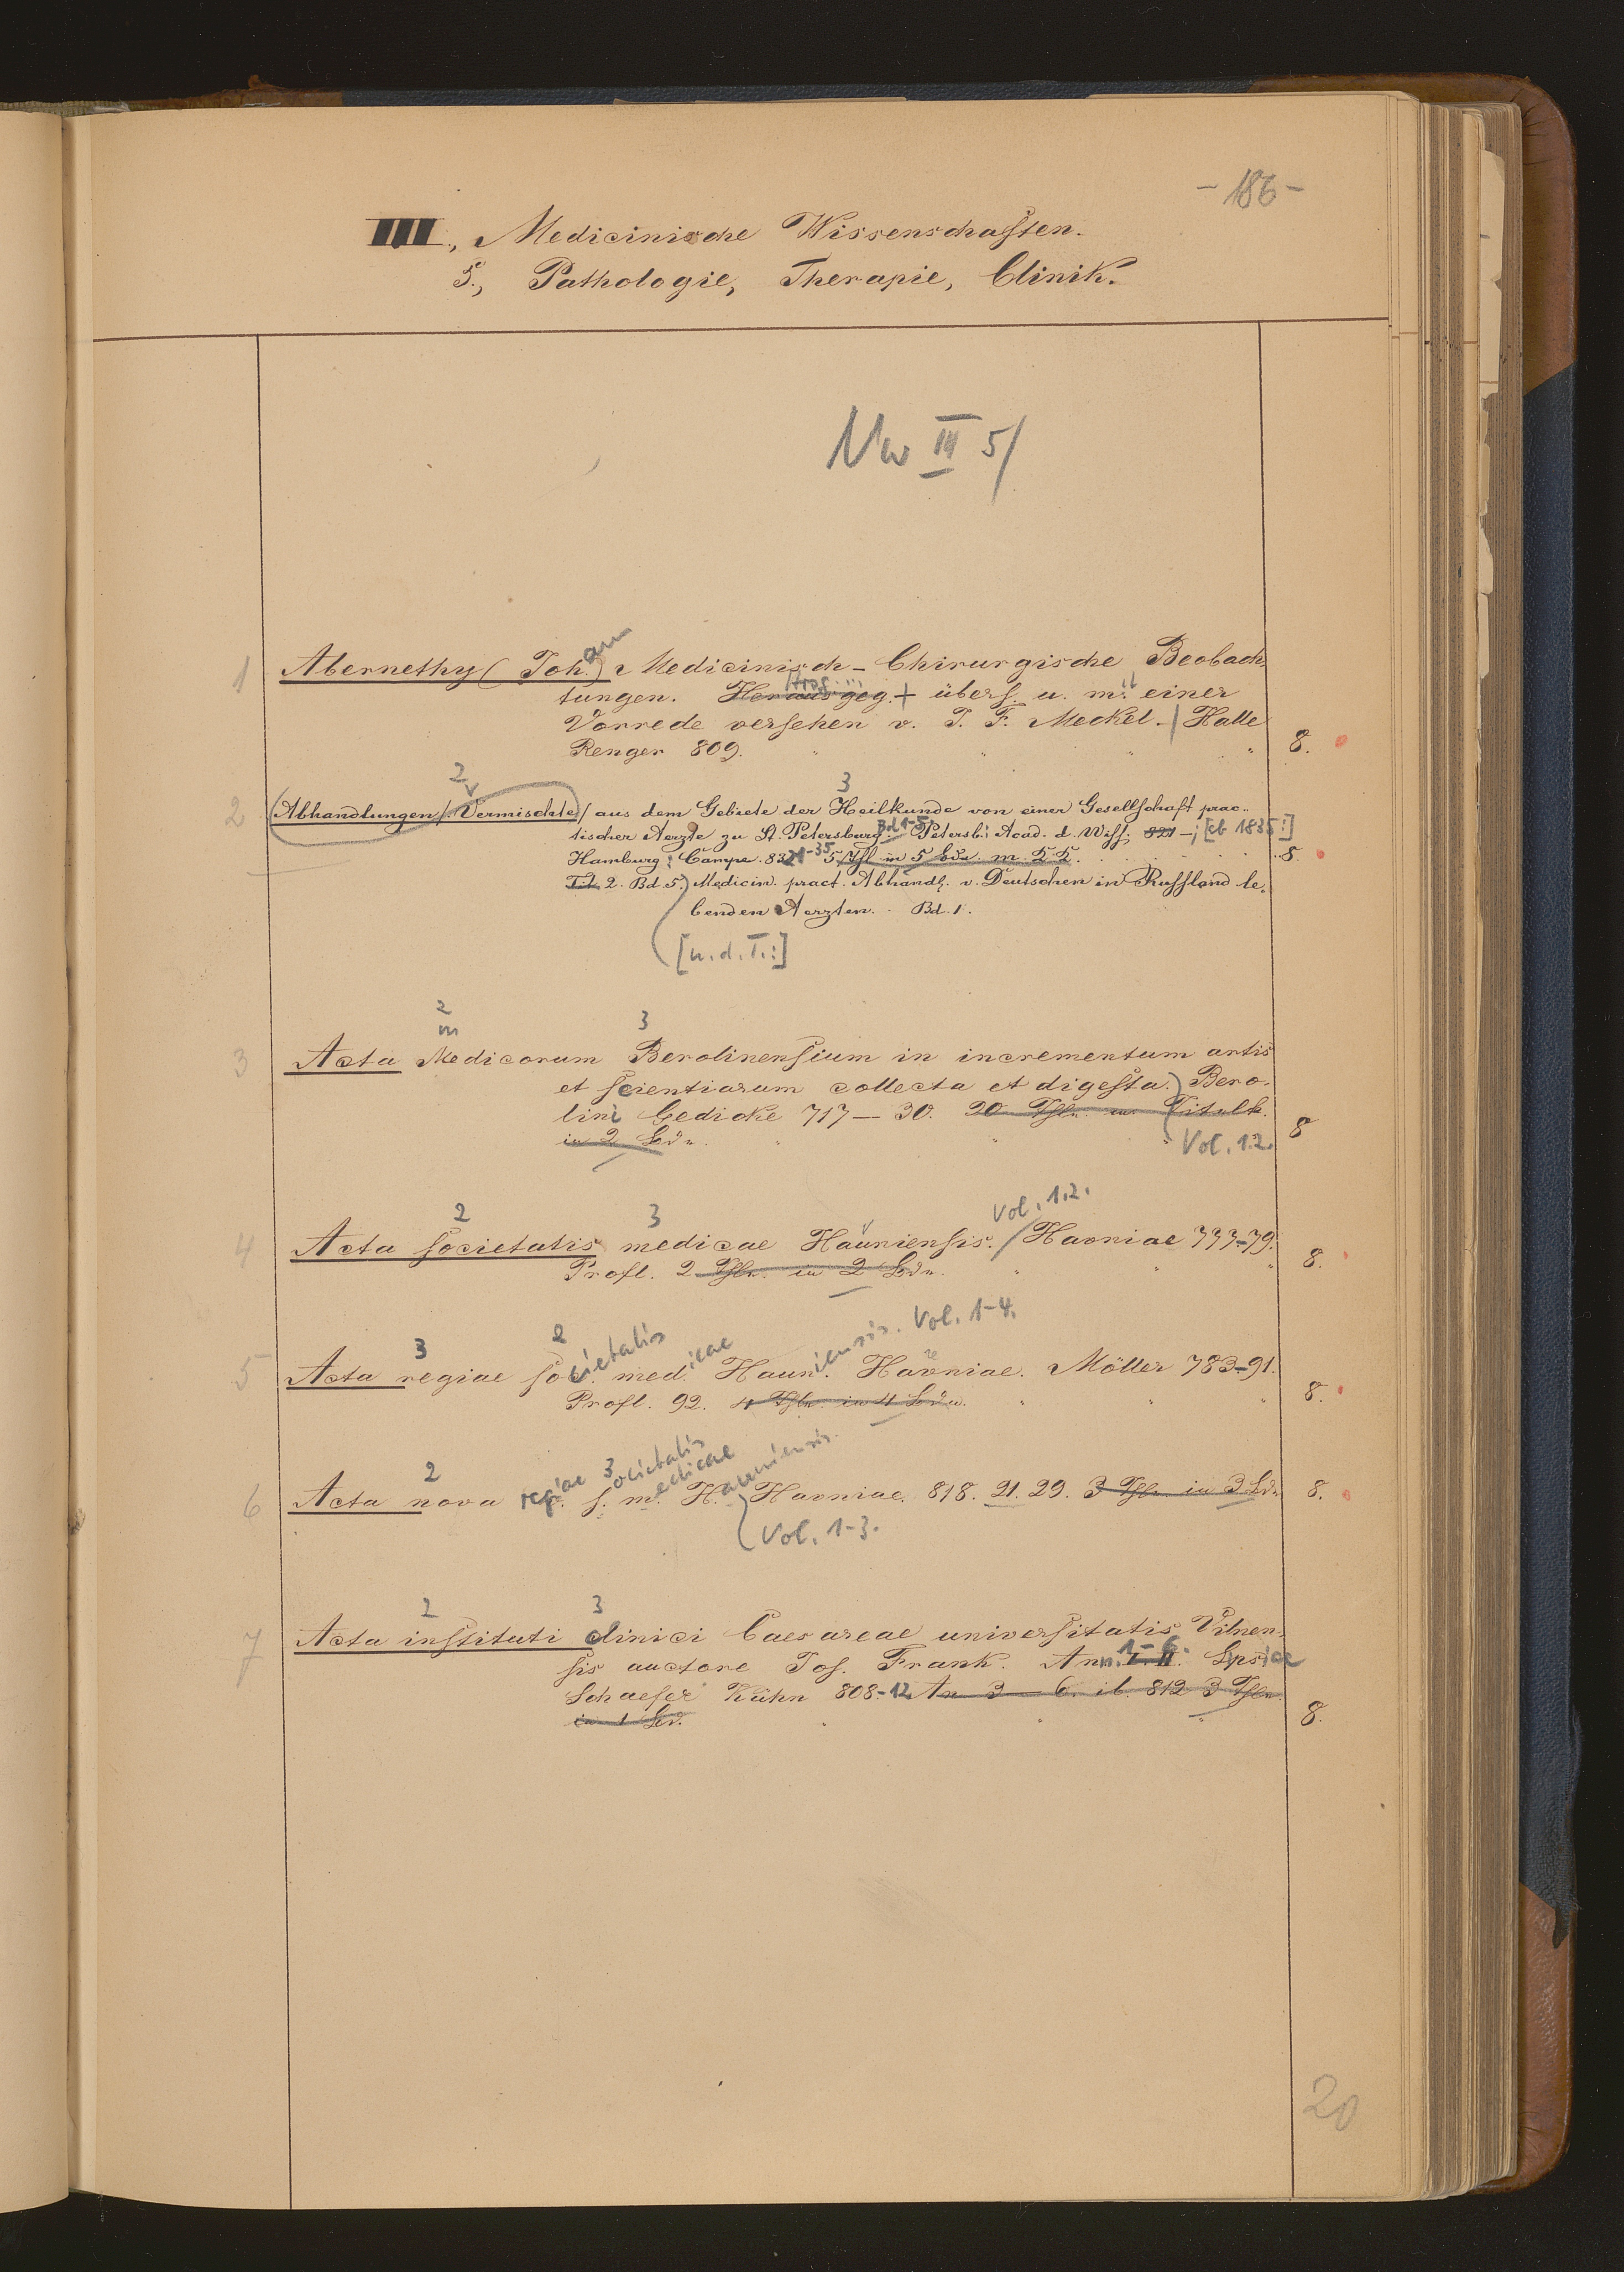 - 186 -
III., Medicinische Wissenschaften.
5., Pathologie, Therapie, Clinik.
Nw III 5/
1 Abernethy (Joh.)ann Medicinisch-Chirurgische Beobach-
tungen. Herausgeg. Hrsg. + übers. u. m. einer
Vorrede versehen v. J. F. Meckel. / Halle
Renger 809. 8.
2 3
2 Abhandlungen /: Vermischte / aus dem Gebiete der Heilkunde von einer Gesellschaft prac-
tischer Aerzte zu St. Petersburg. Bd 1-5 Petersb.: Acad. d. Wiss. 821 -; [ab 1835:]
Hamburg: Campe. 8321-35 5 Thl in 5 Bdn. m. K K. 8.
Tit. 2. Bd. 5. Medicin. pract. Abhandl. v. Deutschen in Russland le-
benden Aerzten. Bd. 1.
[u. d. T.:]
2 3
m
3 Acta Medicorum Berolinensium in incrementum artis
et scientiarum collecta et digesta. Bero-
lini Gedicke 717-30. 20 Thle. Titelk.
in 2 Bdn. Vol. 1.2. 8
2 3 Vol. 1.2.
4 Acta societatis medicae Hauniensis. / Havniae 777-79.
Proft. 2 Thle. in 2 Bdn. 8.
3 2
5 Acta regiae societatis medicae Hauniensis. Vol. 1-4. Havniae. Möller 783-91.
Proft. 92. 4 Thle. in 4 Bdn. 8.
2 3
6 Acta nova regiae societatis medicae Hauniensis. Havniae. 818. 21. 29. 3 Thle. in 3 Bdn 8.
Vol. 1-3.
2 3
7 Acta instituti clinici Caesareae universitatis Vilnen-
sis auctore Jos. Frank. Ann. I. II. 1-6. Lpsiae
Schaefer Kühn 808-12 An 3-6. ib. 812 3 Thle.
in 1 Bd. 8.
20